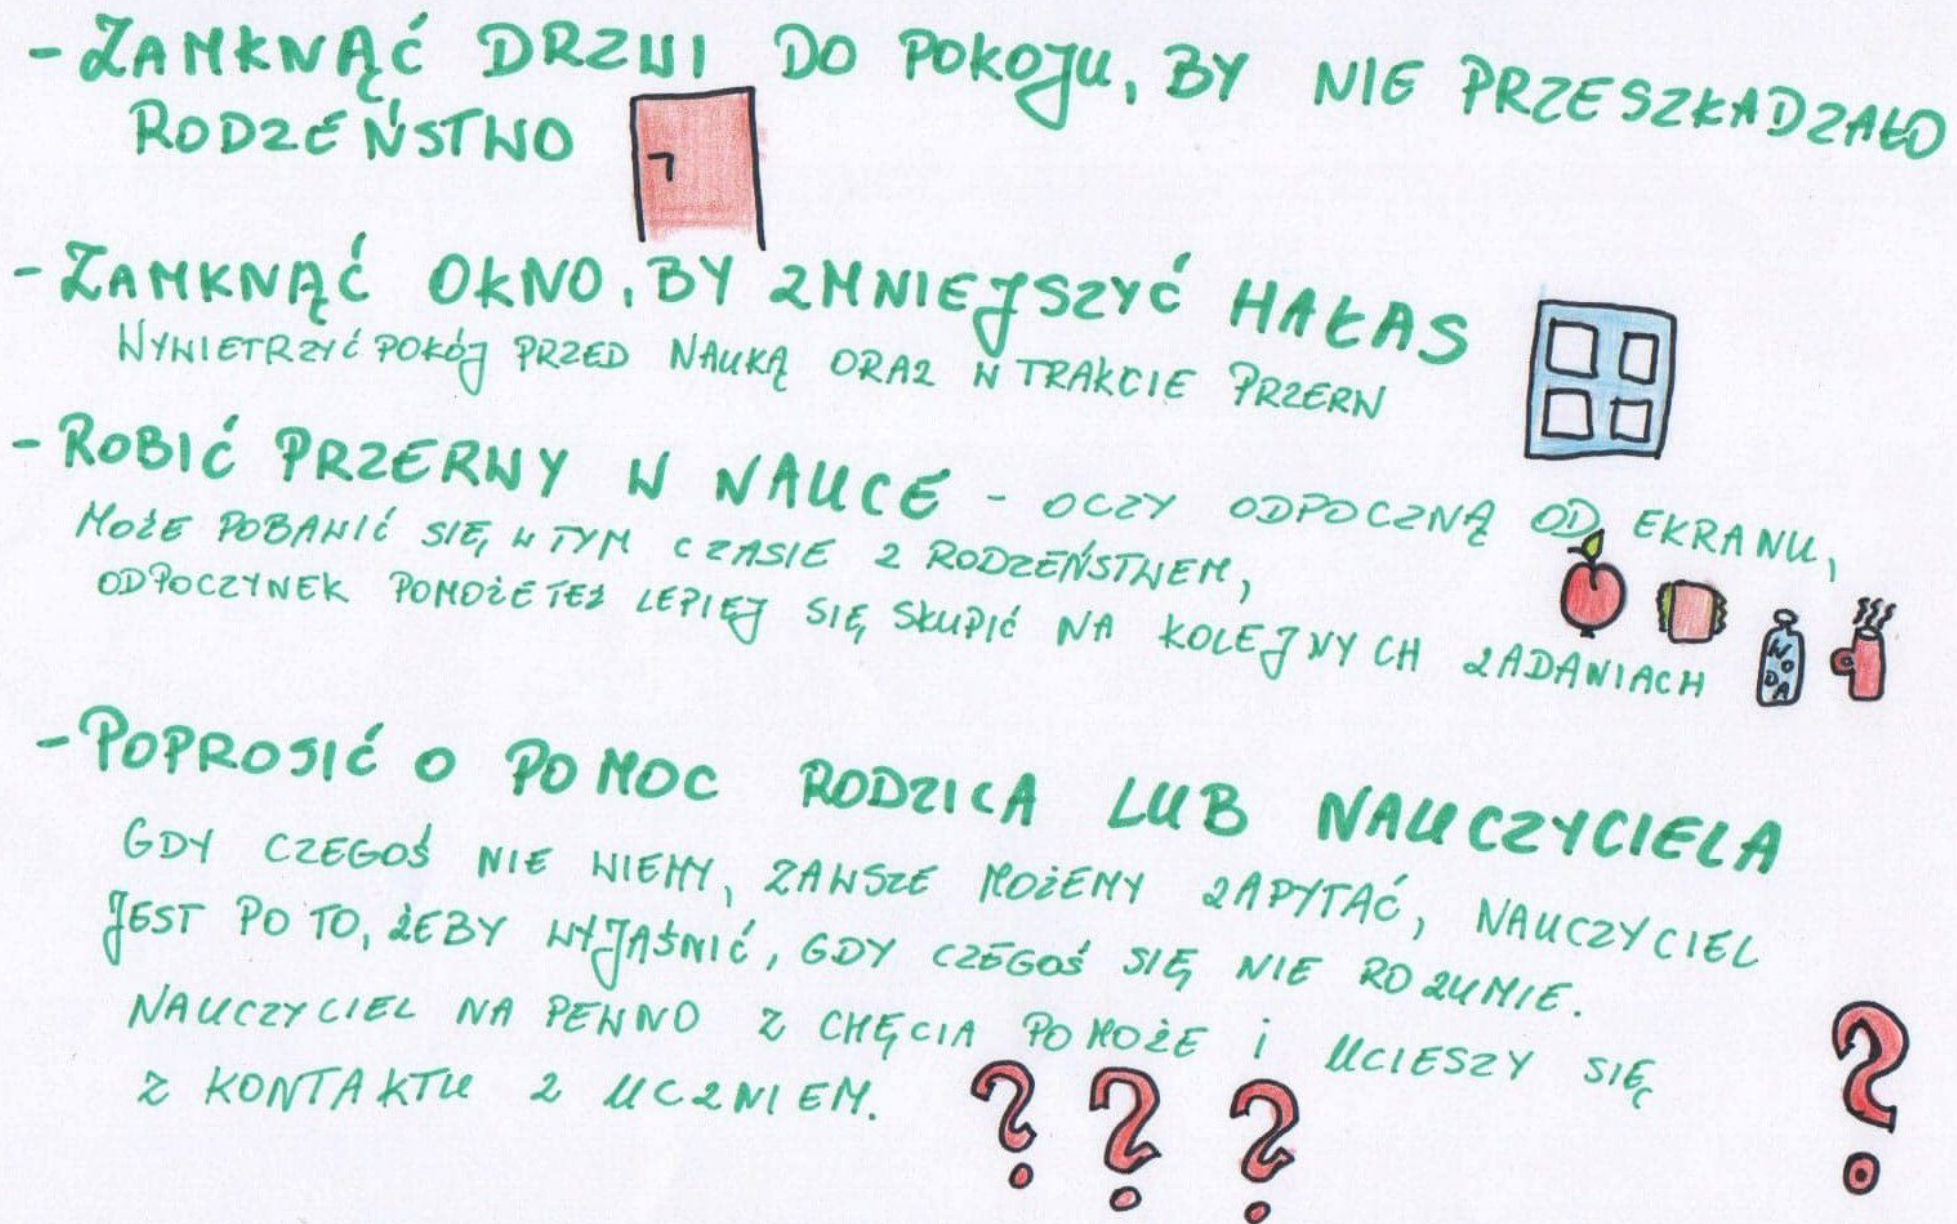 - ZAMKNĄĆ DRZWI DO POKOJU, BY NIE PRZESZKADZAŁO
RODZEŃSTWO
- ZAMKNĄĆ OKNO, BY ZMNIEJSZYĆ HAŁAS
WYWIETRZYĆ POKÓJ PRZED NAUKĄ ORAZ W TRAKCIE PRZERW
- ROBIĆ PRZERWY W NAUCE - OCZY ODPOCZNĄ OD EKRANU,
MOŻE POBAWIĆ SIĘ W TYM CZASIE Z RODZEŃSTWEM,
ODPOCZYNEK POMOŻE TEŻ LEPIEJ SIĘ SKUPIĆ NA KOLEJNYCH ZADANIACH
WODA
- POPROSIĆ O POMOC RODZICA LUB NAUCZYCIELA
GDY CZEGOŚ NIE WIEMY, ZAWSZE MOŻEMY ZAPYTAĆ, NAUCZYCIEL
JEST PO TO, ŻEBY WYJAŚNIĆ, GDY CZEGOŚ SIĘ NIE ROZUMIE.
NAUCZYCIEL NA PEWNO Z CHĘCIA POMOŻE i UCIESZY SIĘ
Z KONTAKTU Z UCZNIEM.
? ? ? ?